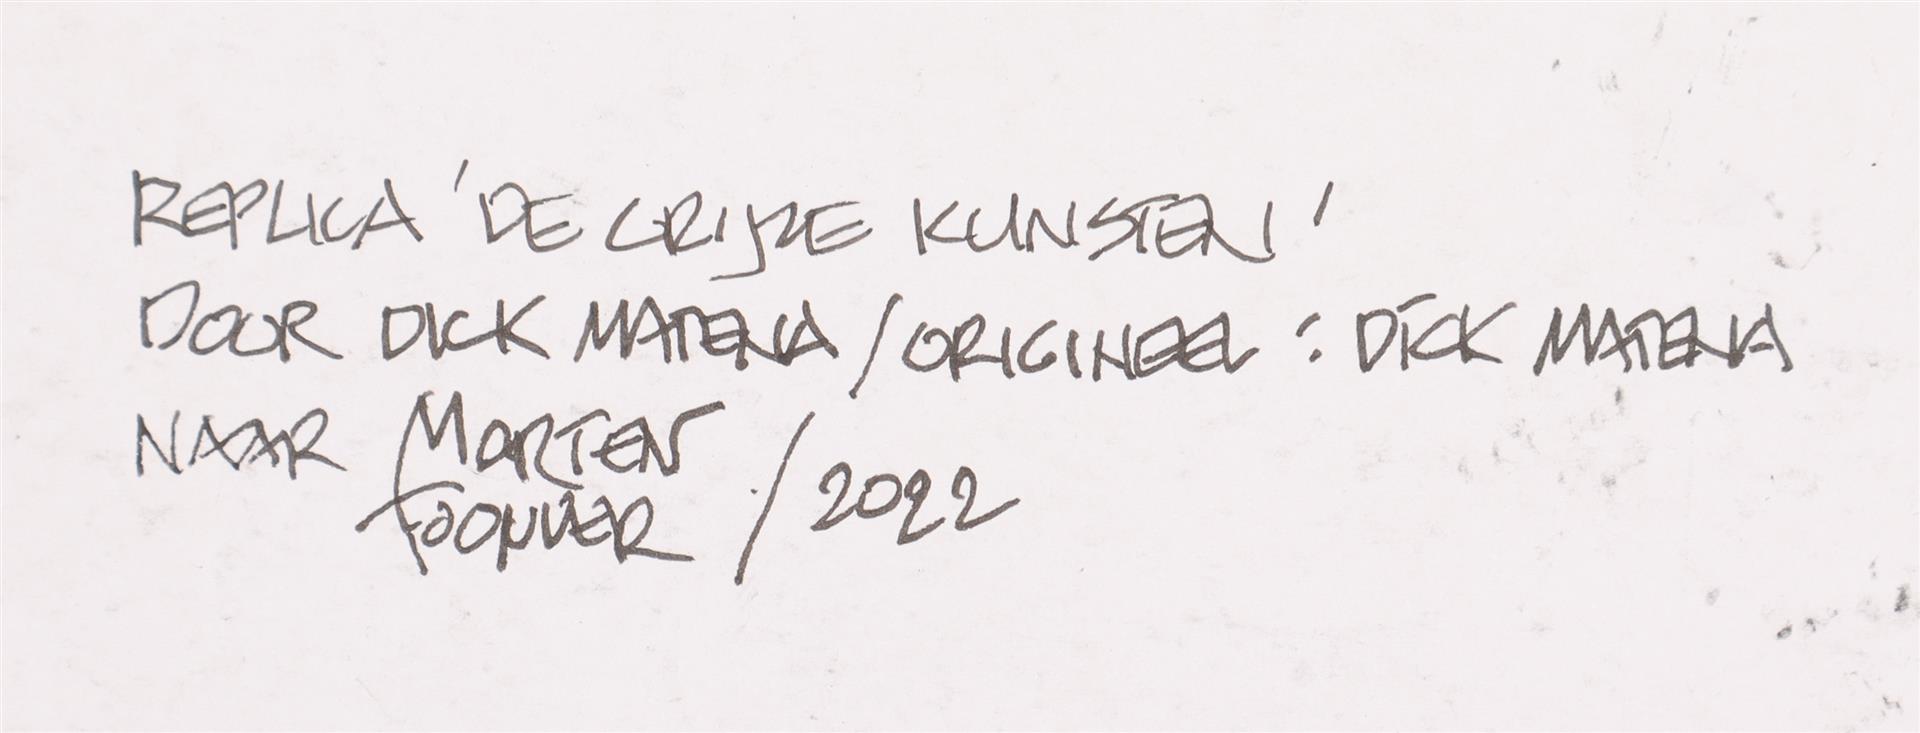 REPLICA 'DE GRIJZE KUNSTEN'
DOOR DICK MATENA / ORIGINEEL : DICK MATENA
NAAR MORTEN / 2022